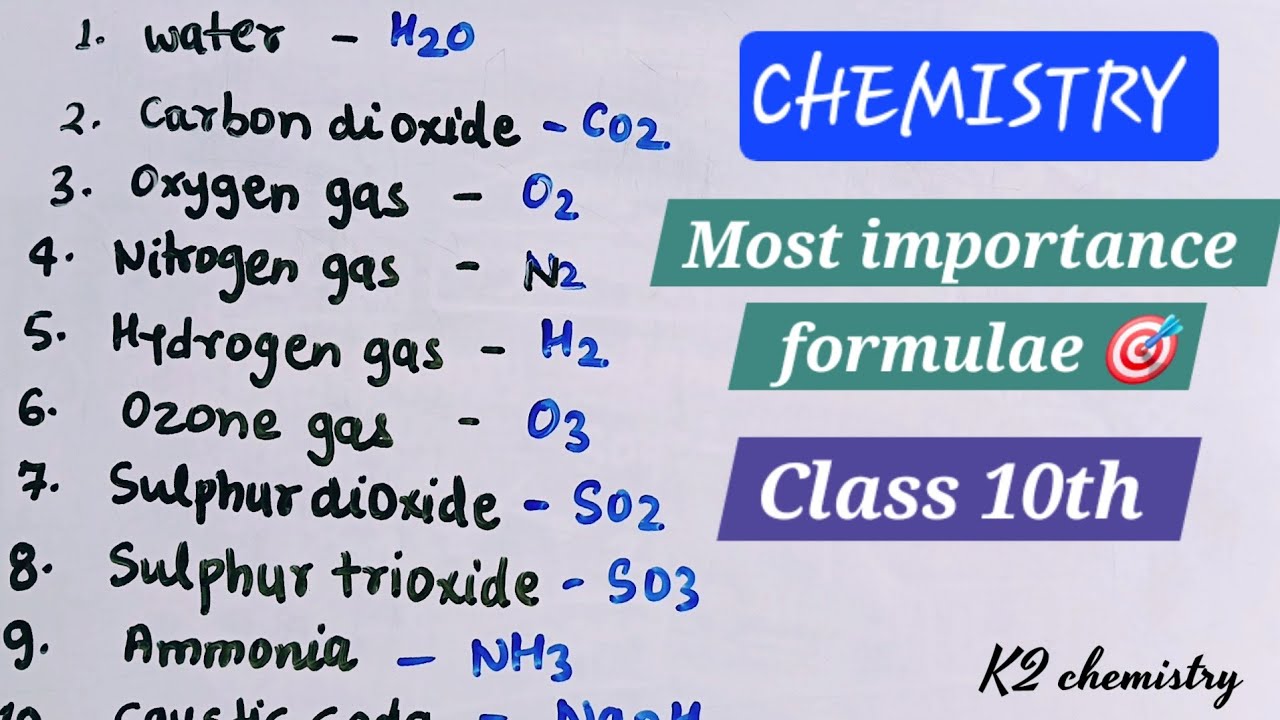 1. Water - H2O
2. Carbon dioxide - CO2.
3. Oxygen gas - O2
4. Nitrogen gas - N2
5. Hydrogen gas - H2
6. Ozone gas - O3
7. Sulphur dioxide - SO2
8. Sulphur trioxide - SO3
9. Ammonia - NH3
10. Caustic soda - NaOH
CHEMISTRY
Most importance
formulae 🎯
Class 10th
K2 chemistry